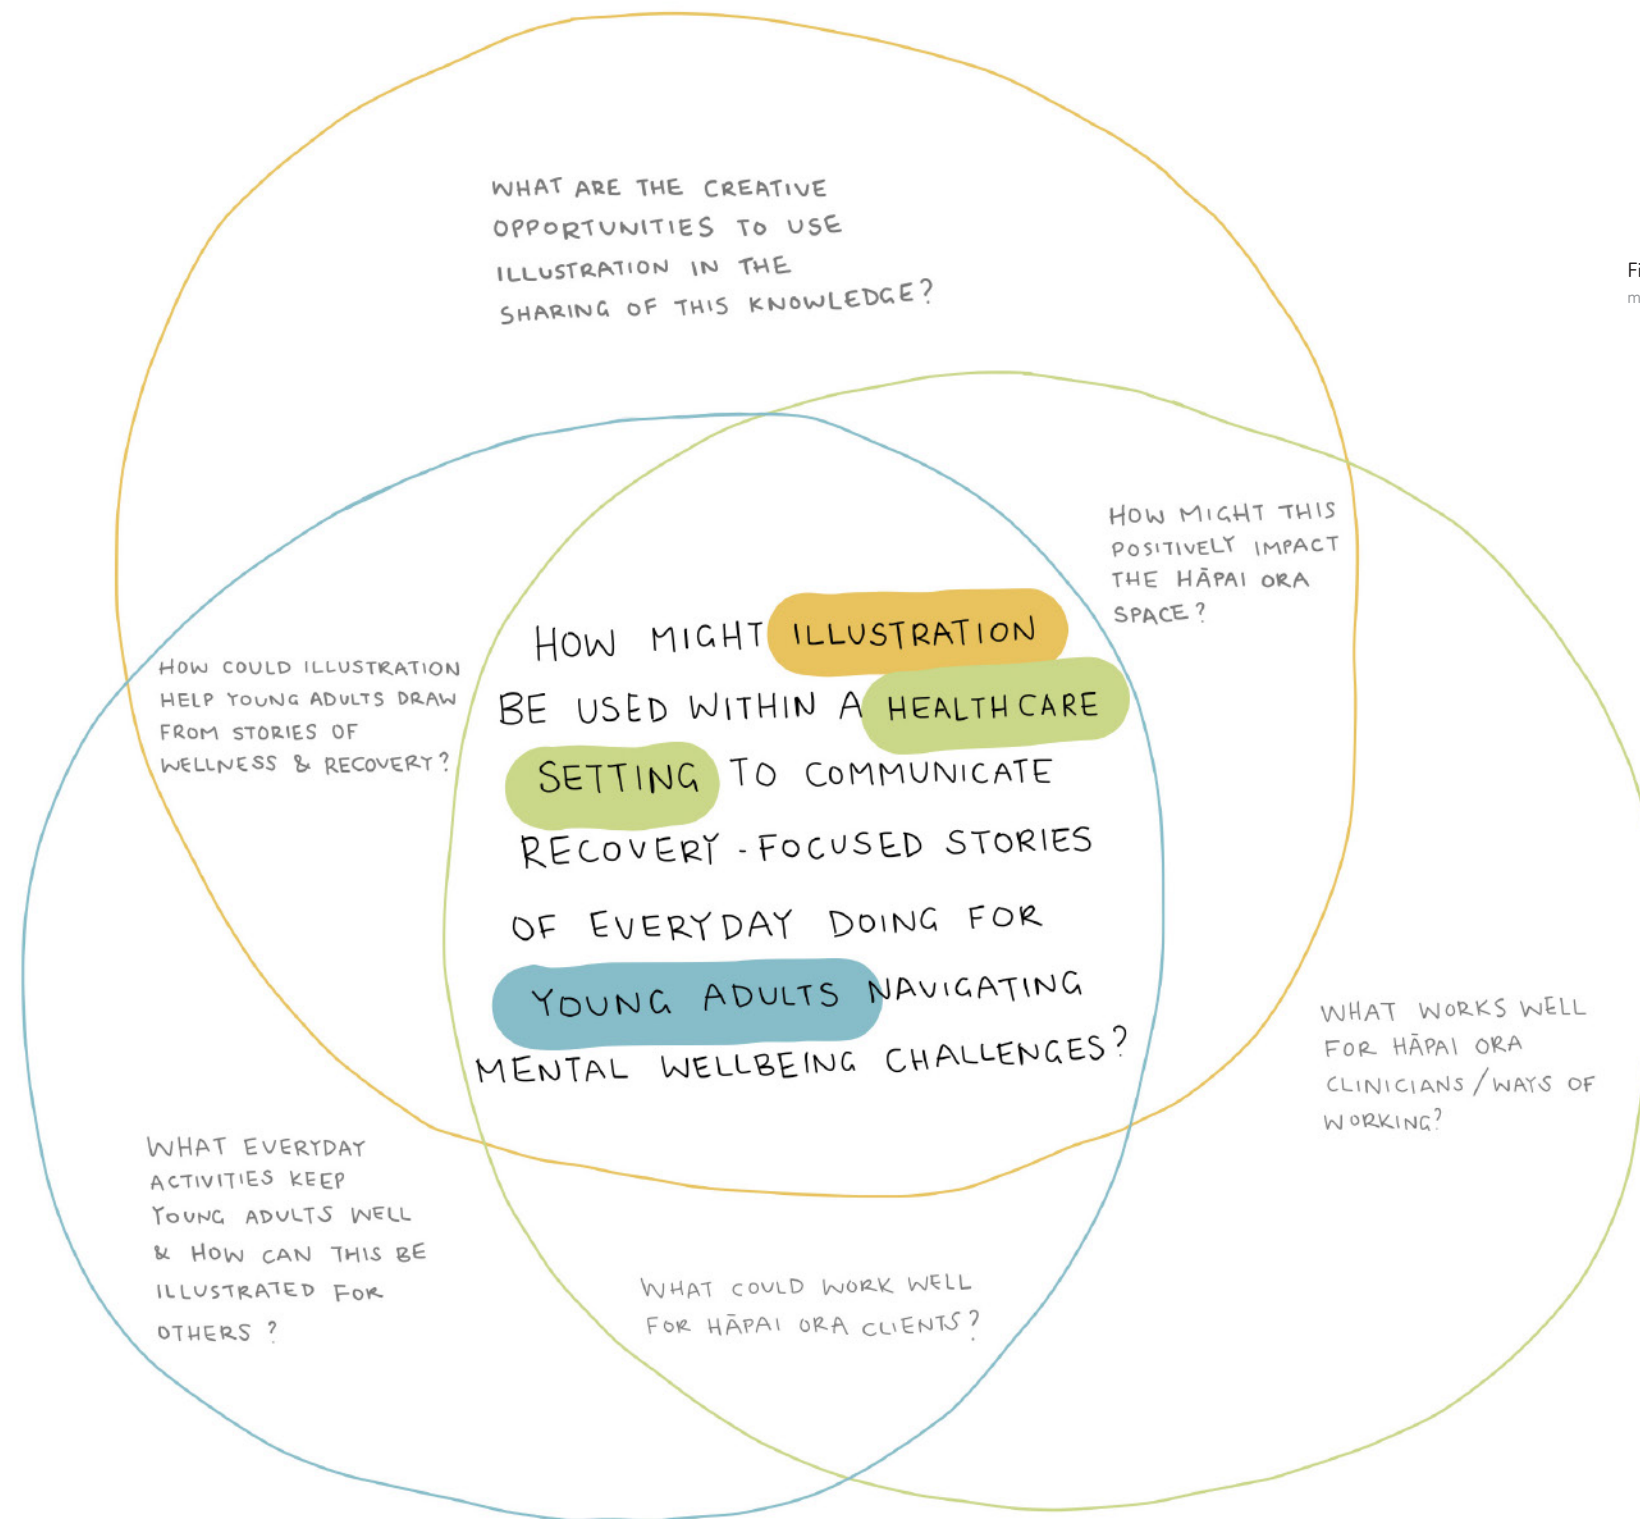 WHAT ARE THE CREATIVE
OPPORTUNITIES TO USE
ILLUSTRATION IN THE
SHARING OF THIS KNOWLEDGE?
HOW MIGHT THIS
POSITIVELY IMPACT
THE HĀPAI ORA
SPACE?
HOW COULD ILLUSTRATION
HELP YOUNG ADULTS DRAW
FROM STORIES OF
WELLNESS & RECOVERY?
HOW MIGHT ILLUSTRATION
BE USED WITHIN A HEALTHCARE
SETTING TO COMMUNICATE
RECOVERY-FOCUSED STORIES
OF EVERYDAY DOING FOR
YOUNG ADULTS NAVIGATING
MENTAL WELLBEING CHALLENGES?
WHAT WORKS WELL
FOR HĀPAI ORA
CLINICIANS/WAYS OF
WORKING?
WHAT EVERYDAY
ACTIVITIES KEEP
YOUNG ADULTS WELL
& HOW CAN THIS BE
ILLUSTRATED FOR
OTHERS?
WHAT COULD WORK WELL
FOR HĀPAI ORA CLIENTS?